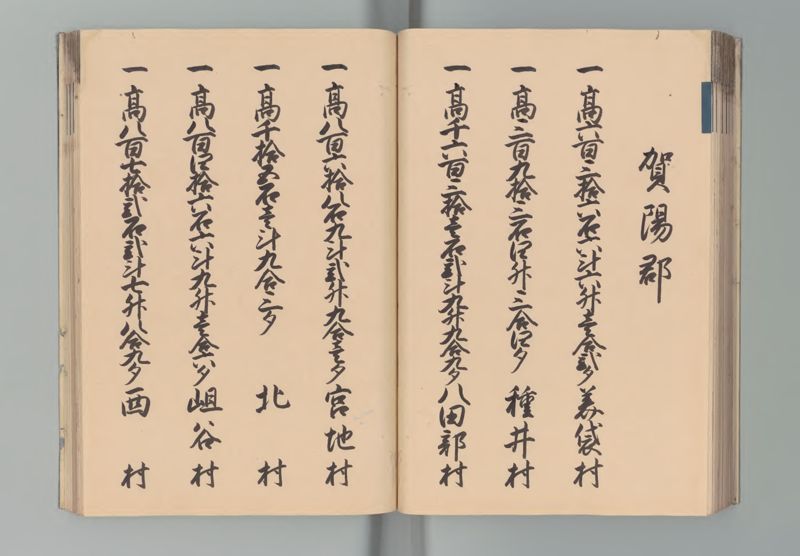 賀陽郡
一高六百三拾六石六斗六升壱合弐夕 美袋村
一高三百九拾三石四升三合四夕 種井村
一高千六百三拾壱石弐斗九升九合九夕 八田部村
一高八百六拾八石九斗弐升九合壱夕 宮地村
一高千拾五石壱斗九合三夕 北村
一高八百四拾六石六斗九升壱合六夕 岨谷村
一高八百七拾弐石弐斗七升八合九夕 西村